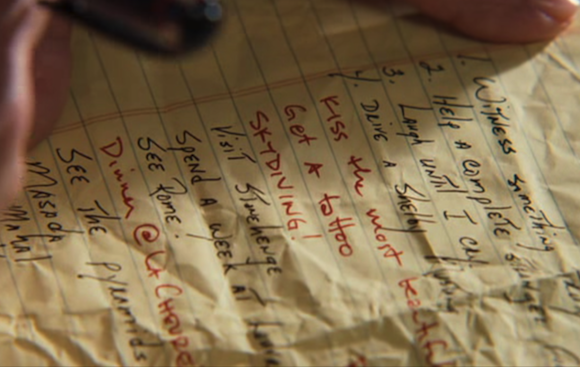 1. Witness something
2. Help a complete stranger
3. Laugh until I cry.
4. DRIVE A Shelby
Kiss the most beautiful
Get A tattoo
SKYDIVING!
Visit Stonehenge
SPEND A WEEK AT
SEE ROME.
Dinner @ La
SEE THE PYRAMIDS
MASADA